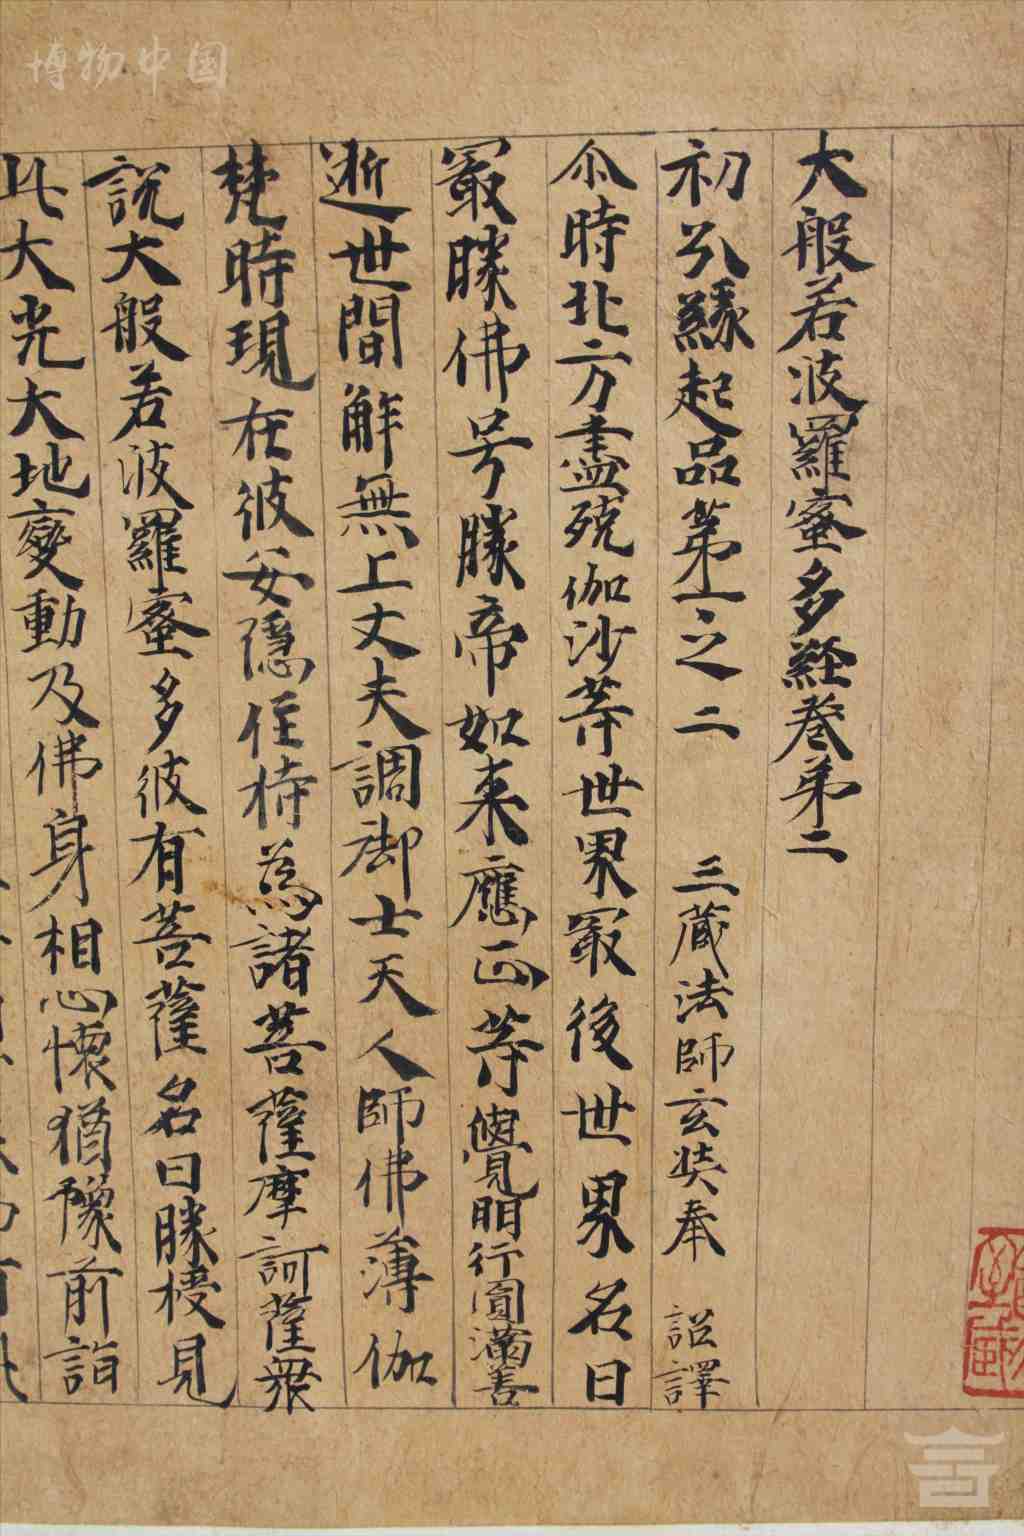 博物中国
大般若波羅蜜多經卷第二
初分緣起品第一之二 三藏法師玄奘奉 詔譯
尒時北方盡殑伽沙等世界最後世界名曰
最勝佛号勝帝如来應正等覺明行圓滿善
逝世間解無上丈夫調御士天人師佛薄伽
梵時現在彼安隱住持為諸菩薩摩訶薩衆
說大般若波羅蜜多彼有菩薩名曰勝授見
此大光大地變動及佛身相心懷猶豫前詣